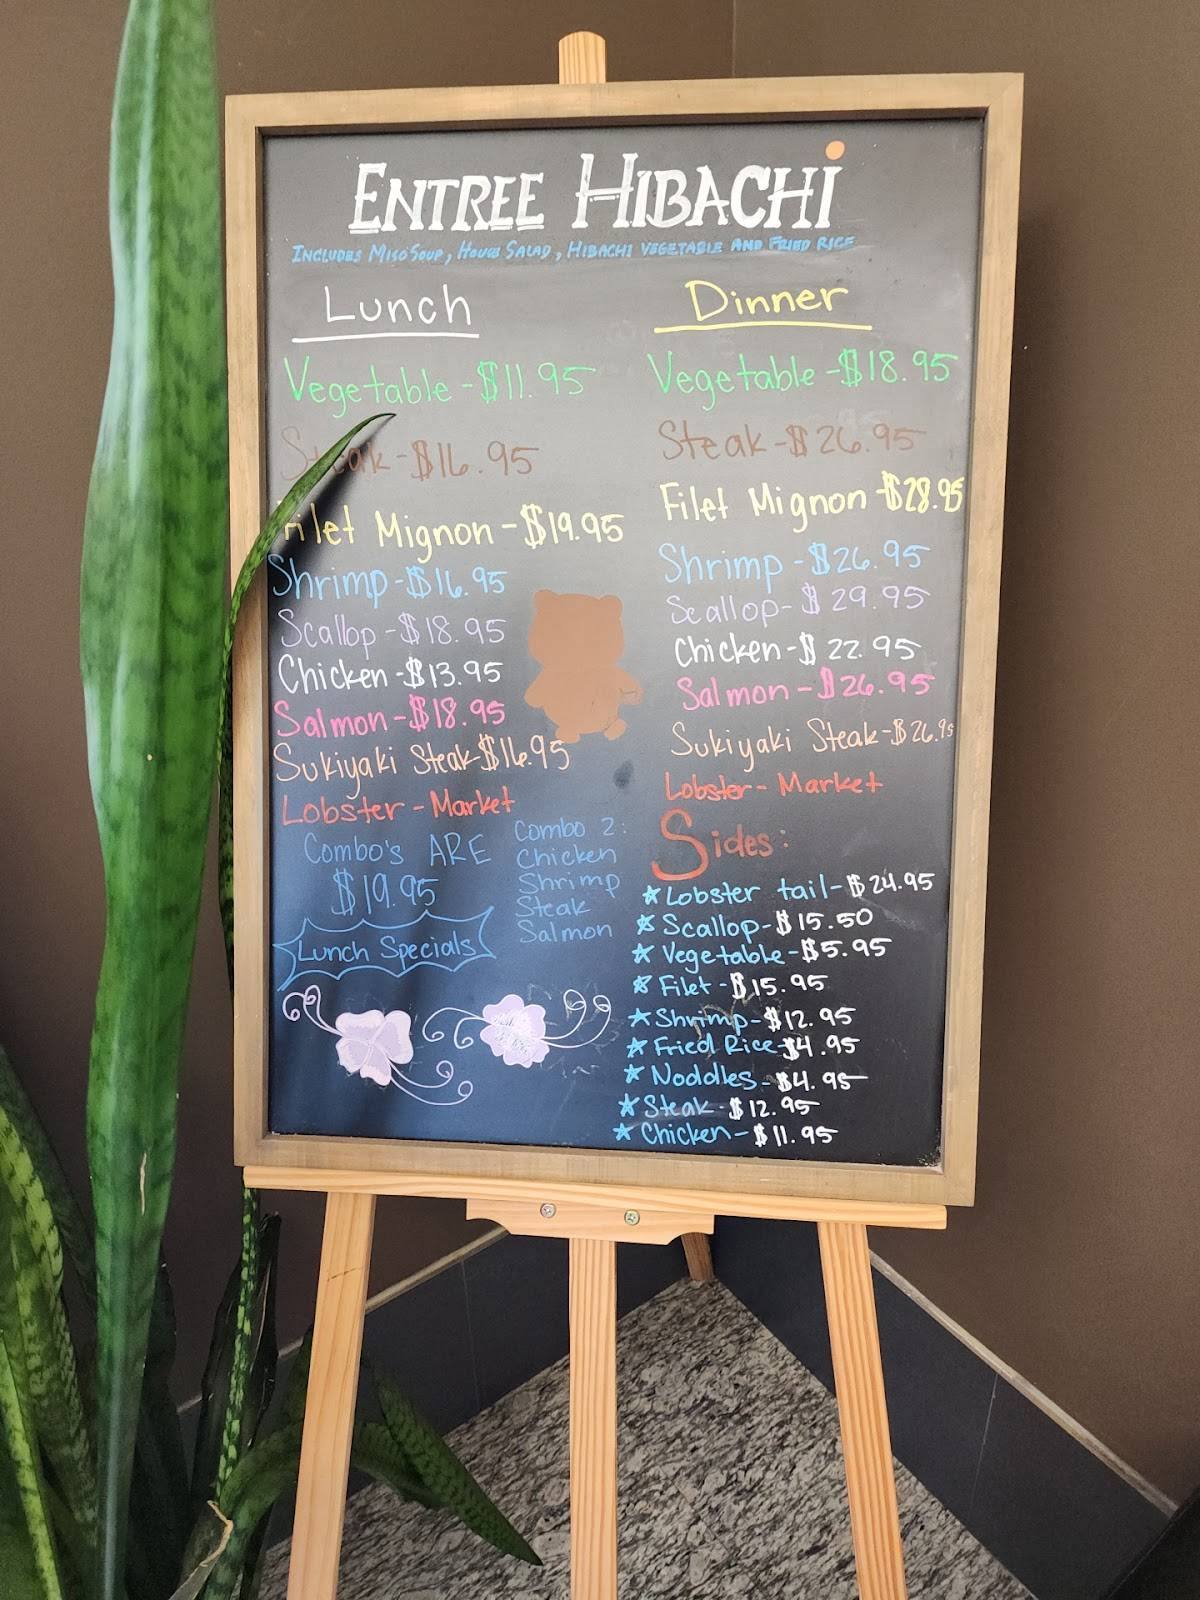 ENTREE HIBACHi
INCLUDES MISO SOUP, HOUSE SALAD, HIBACHI VEGETABLE AND FRIED RICE
Lunch
Vegetable - $11.95
Steak - $16.95
Filet Mignon - $19.95
Shrimp - $16.95
Scallop - $18.95
Chicken - $13.95
Salmon - $18.95
Sukiyaki Steak - $16.95
Lobster - Market
Combo's ARE
$19.95
Lunch Specials
Combo 2:
Chicken
Shrimp
Steak
Salmon
Dinner
Vegetable - $18.95
Steak - $26.95
Filet Mignon - $28.95
Shrimp - $26.95
Scallop - $29.95
Chicken - $22.95
Salmon - $26.95
Sukiyaki Steak - $26.95
Lobster - Market
Sides:
★ Lobster tail - $24.95
★ Scallop - $15.50
★ Vegetable - $5.95
★ Filet - $15.95
★ Shrimp - $12.95
★ Fried Rice - $4.95
★ Noddles - $4.95
★ Steak - $12.95
★ Chicken - $11.95